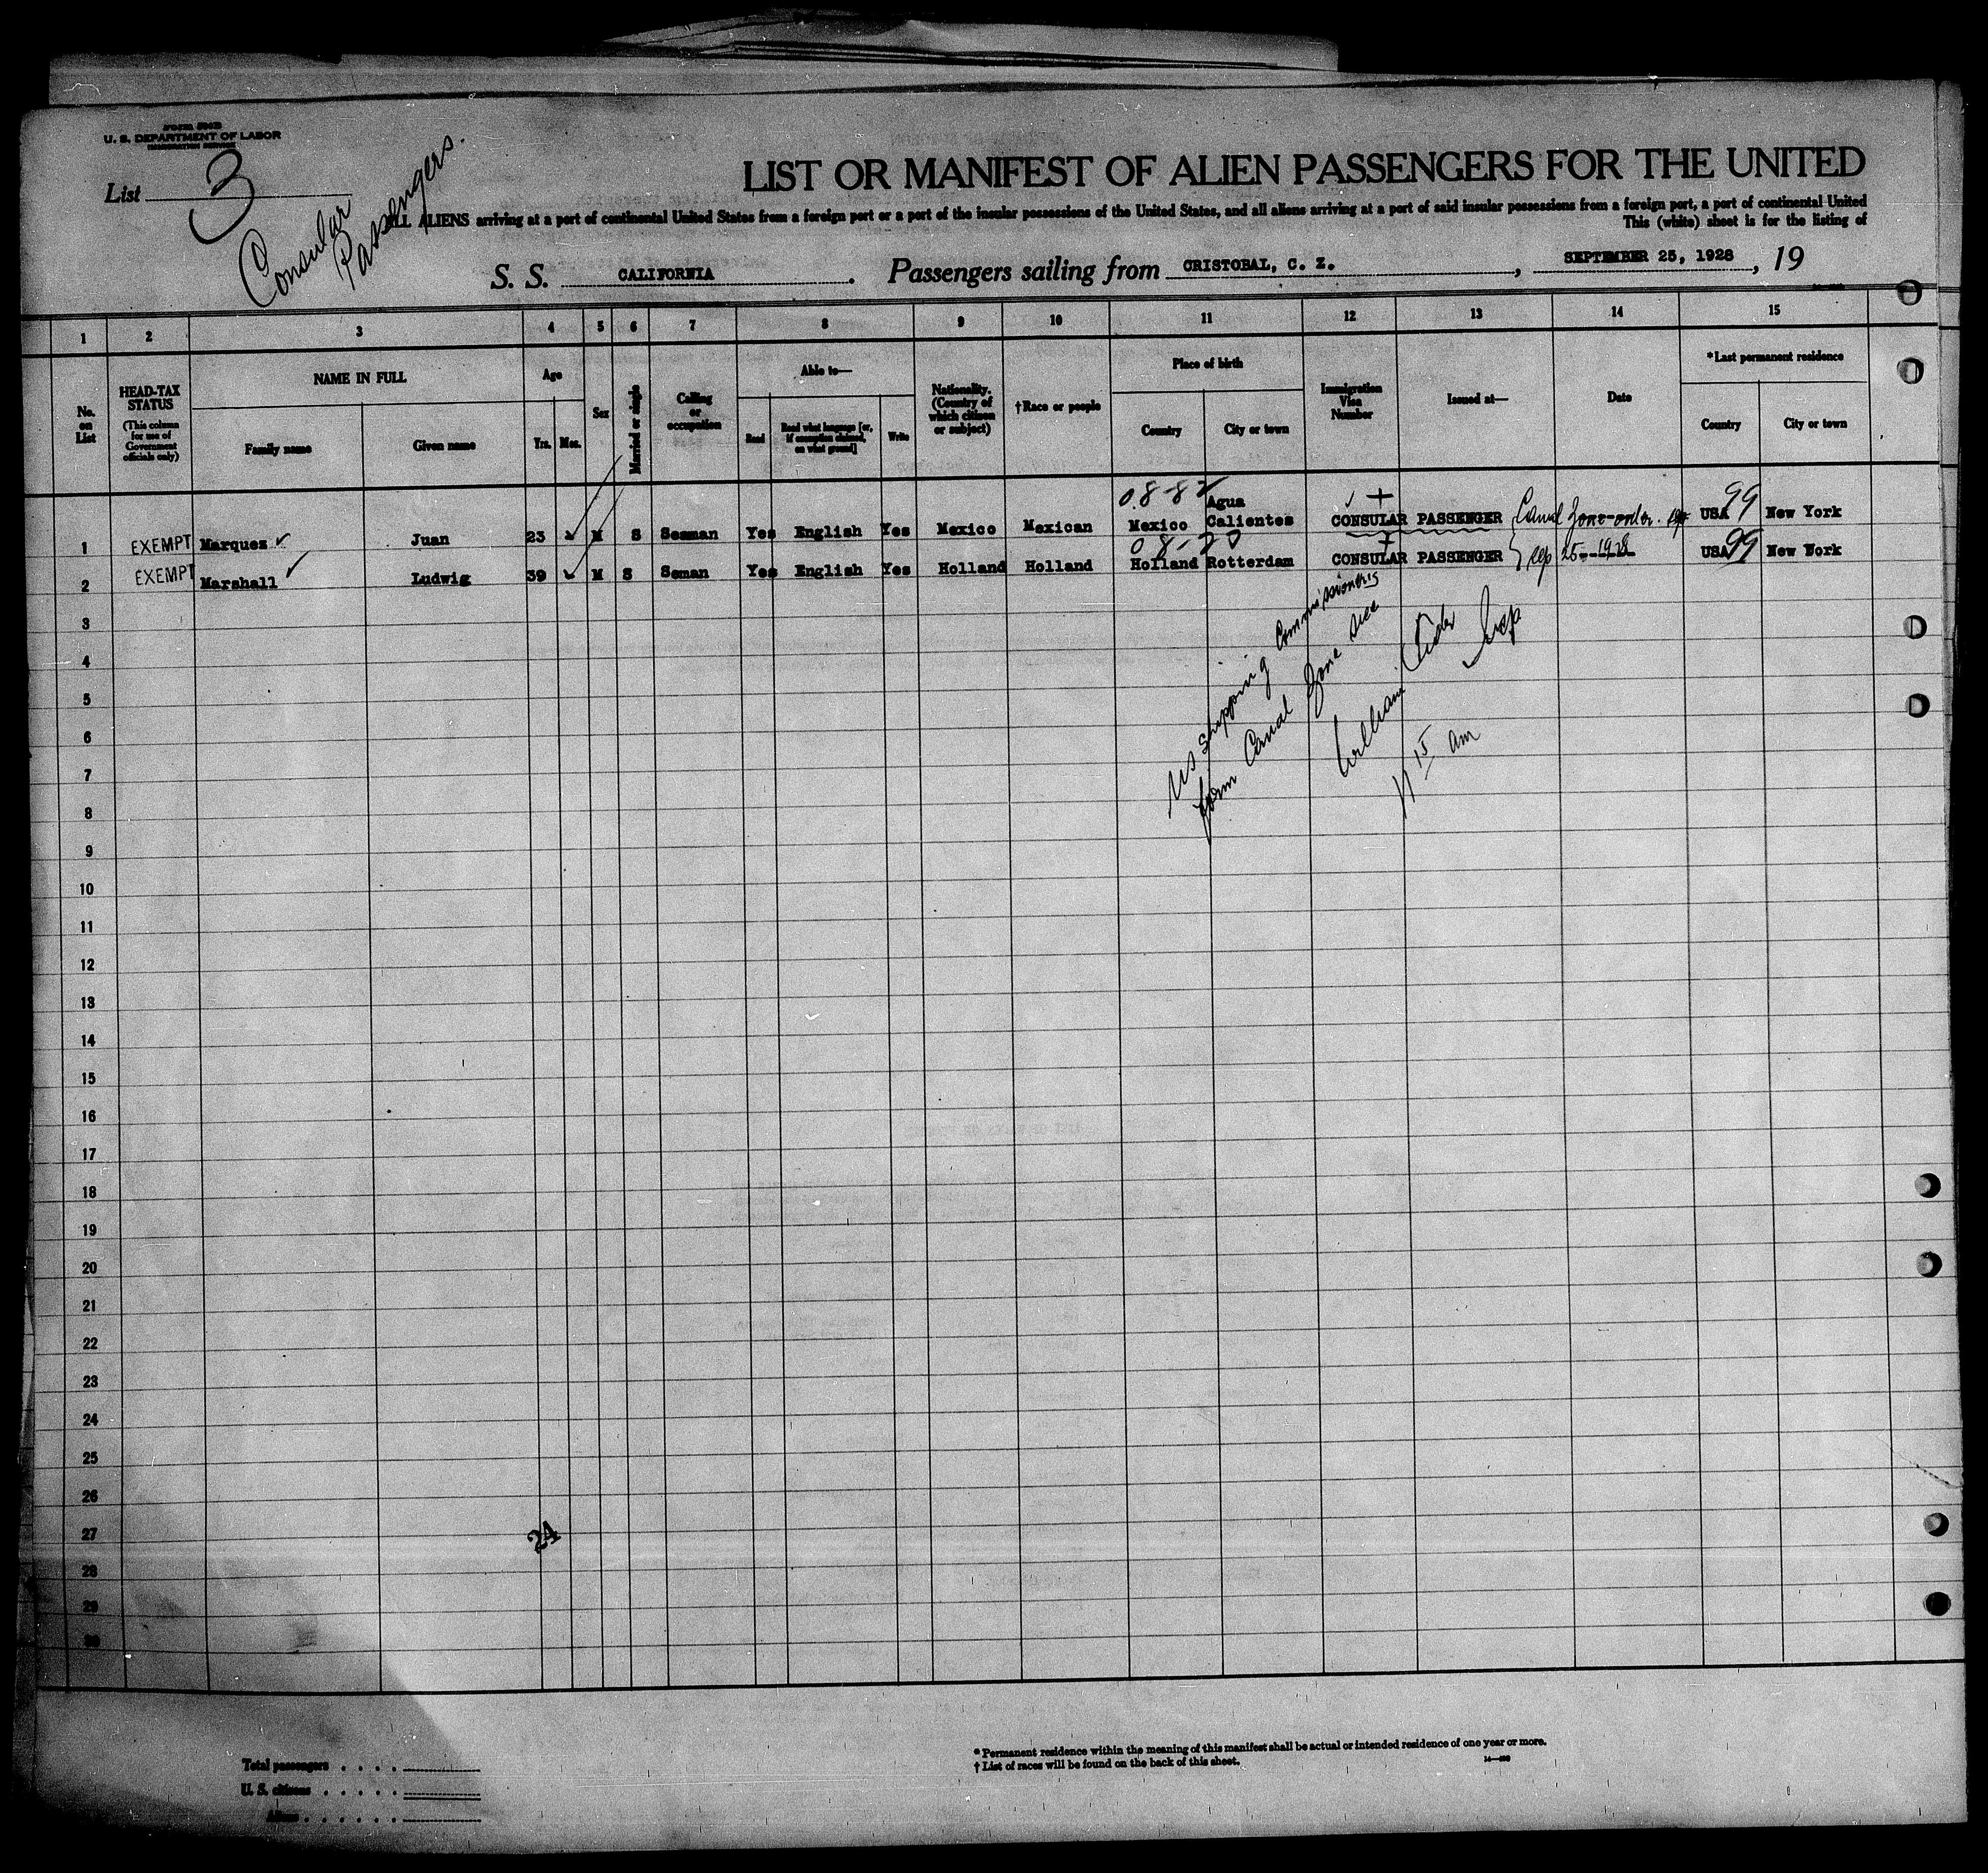 U. S. DEPARTMENT OF LABOR
IMMIGRATION SERVICE
List 3
Consular
Passengers.
LIST OR MANIFEST OF ALIEN PASSENGERS FOR THE UNITED
ALL ALIENS arriving at a port of continental United States from a foreign port or a port of the insular possessions of the United States, and all aliens arriving at a port of said insular possessions from a foreign port, a port of continental United
This (white) sheet is for the listing of
S. S. CALIFORNIA. Passengers sailing from CRISTOBAL, C. Z., SEPTEMBER 25, 1928, 19
1 2 3 4 5 6 7 8 9 10 11 12 13 14 15
No. on List
HEAD-TAX STATUS
(This column for use of Government officials only)
NAME IN FULL
Family name
Given name
Age
Yrs. Mos.
Sex
Married or single
Calling or occupation
Able to—
Read
Read what language [or, if exemption claimed, on what ground]
Write
Nationality. (Country of which citizen or subject)
†Race or people
Place of birth
Country
City or town
Immigration Visa Number
Issued at—
Date
*Last permanent residence
Country
City or town
1 EXEMPT Marquez Juan 23 M S Seaman Yes English Yes Mexico Mexican Mexico Agua Calientes CONSULAR PASSENGER Canal Zone-order. USA 99 New York
2 EXEMPT Marshall Ludwig 39 M S Seman Yes English Yes Holland Holland Holland Rotterdam CONSULAR PASSENGER Sep 25-1928 USA 99 New York
3
4
5
6
7
8
9
10
11
12
13
14
15
16
17
18
19
20
21
22
23
24
25
26
27
28
29
30
US Shipping Commissioners
form Canal Zone
William
Insp
11 15 am
24
Total passengers
U. S. citizens
Aliens
* Permanent residence within the meaning of this manifest shall be actual or intended residence of one year or more.
† List of races will be found on the back of this sheet.